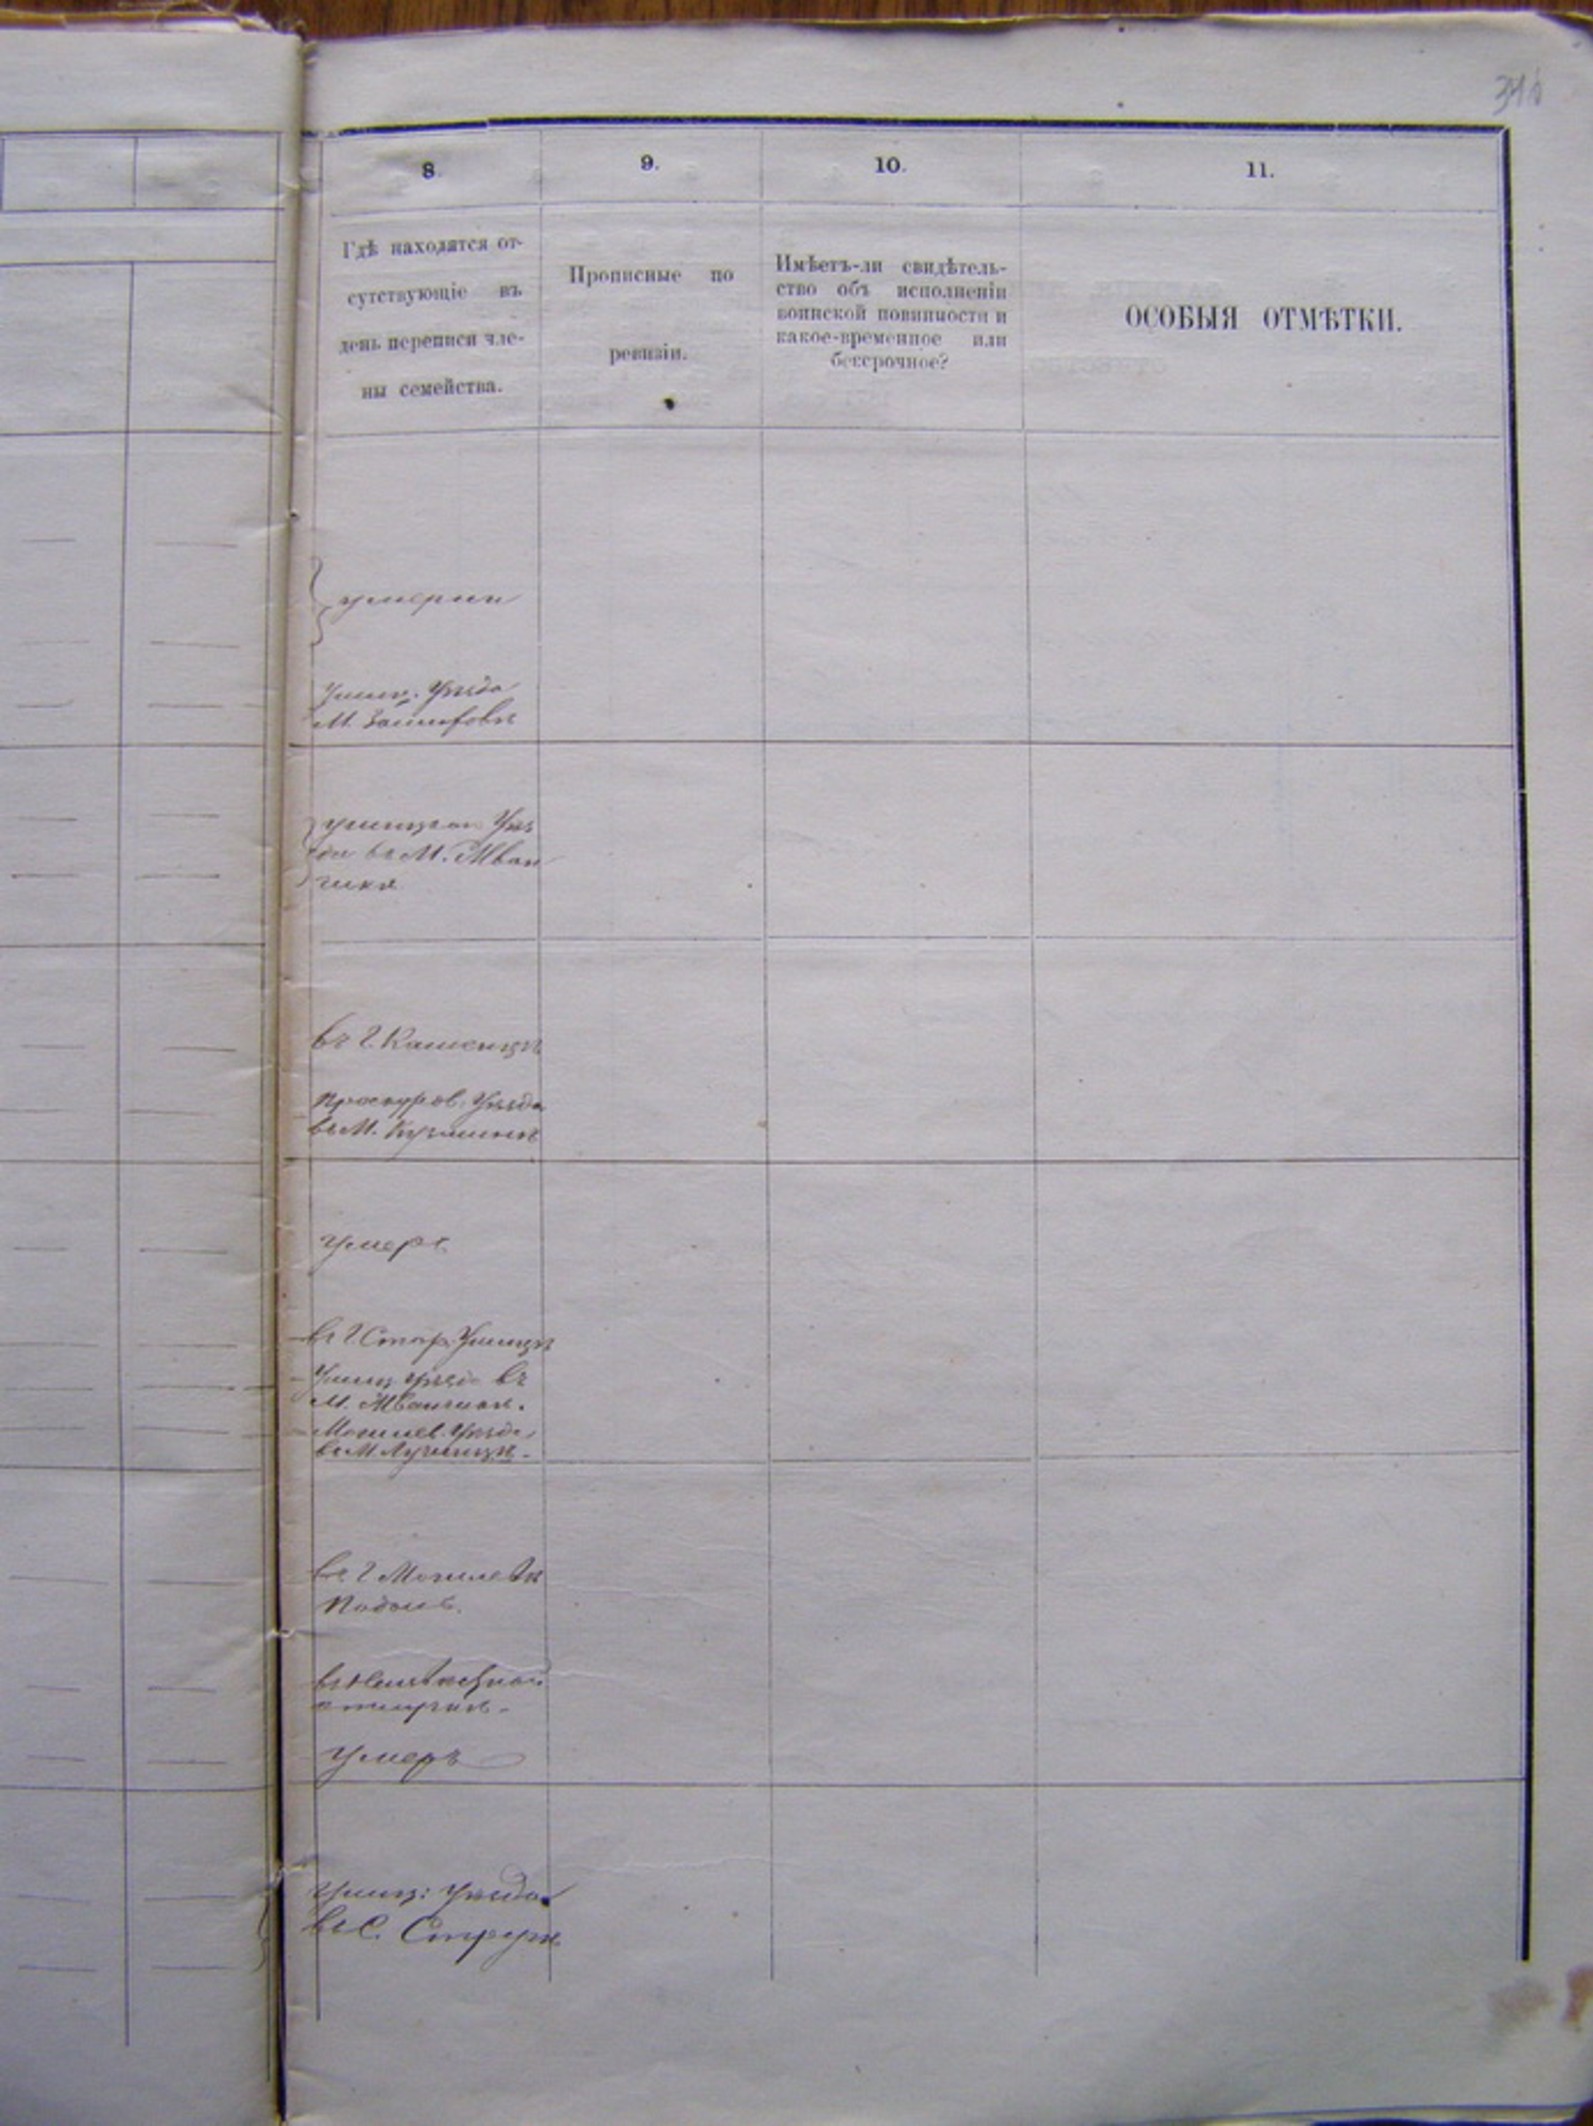 8.
9.
10.
11.
Гдѣ находятся от-
сутствующіе въ
день переписи чле-
ны семейства.
Прописные по
ревизіи.
Имѣетъ-ли свидѣтель-
ство объ исполненіи
воинской повинности и
какое-временное или
безсрочное?
ОСОБЫЯ ОТМѢТКИ.
умерши
Ушиц. Уѣзда
М.
Ушицкаго Уѣз
да въ М. Жван
чикѣ
въ г. Каменцѣ
Проскуров. Уѣзда
въ М. Кузминѣ
Умеръ
въ г. Стар. Ушицѣ
Ушиц. Уѣзда въ
М. Жванчикѣ.
Могилев. Уѣзда
въ М. Лучинцѣ.
въ г. Могилевѣ
Подол.
въ неизвѣстной
отлучкѣ.
Умеръ
Ушиц: Уѣзда
въ С. Струги